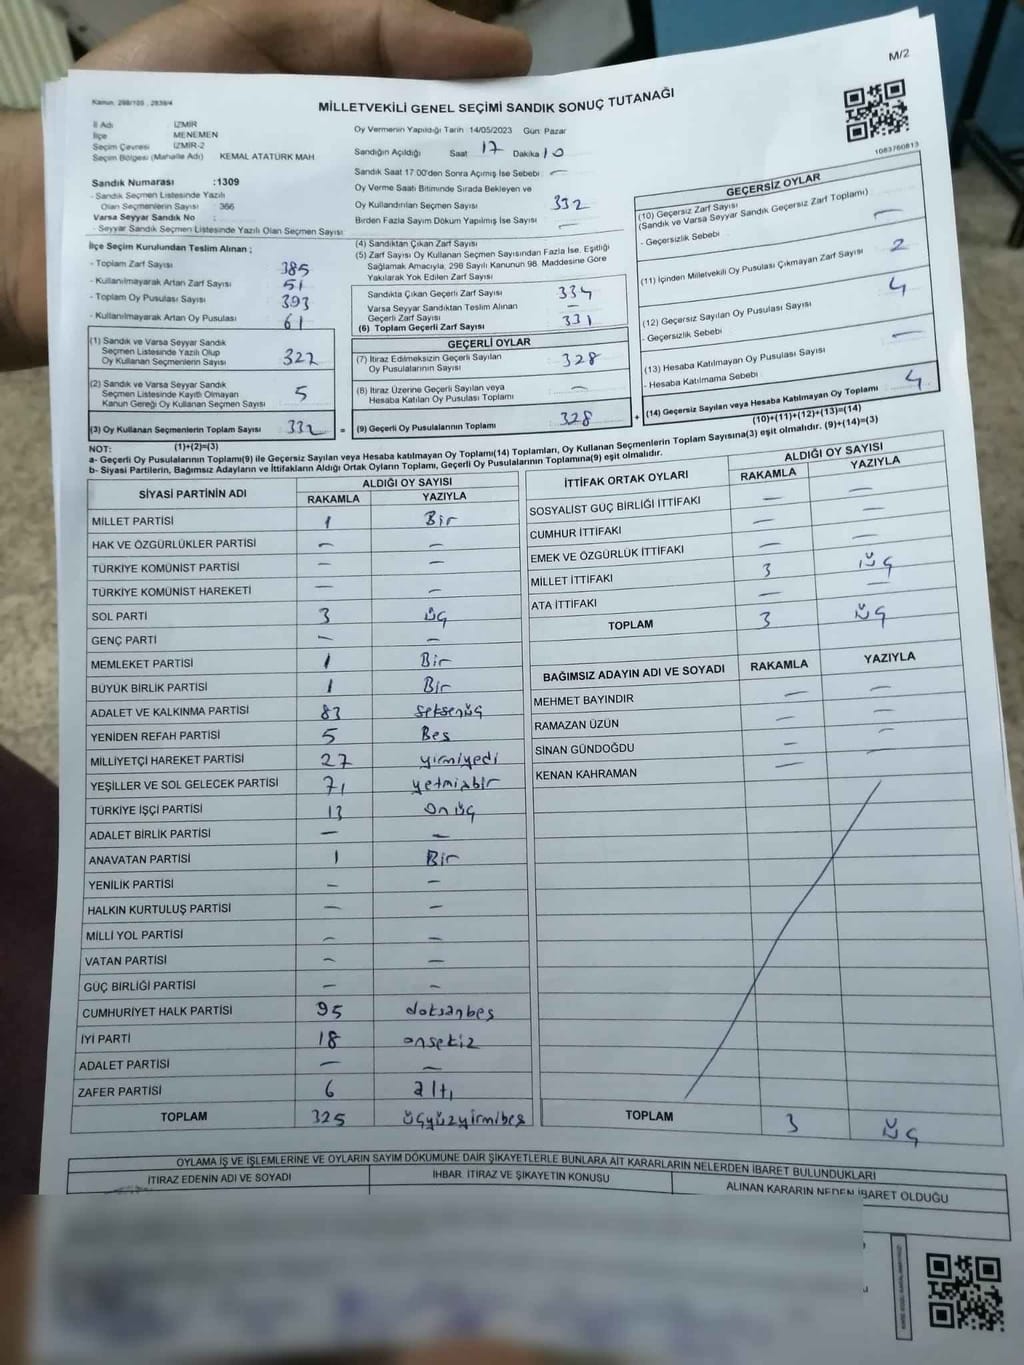 M/2
Kanun: 298/105 , 2839/4
MİLLETVEKİLİ GENEL SEÇİMİ SANDIK SONUÇ TUTANAĞI
İl Adı İZMİR
İlçe MENEMEN
Seçim Çevresi İZMİR-2
Seçim Bölgesi (Mahalle Adı) KEMAL ATATÜRK MAH
Sandık Numarası :1309
- Sandık Seçmen Listesinde Yazılı
Olan Seçmenlerin Sayısı : 366
Varsa Seyyar Sandık No :
- Seyyar Sandık Seçmen Listesinde Yazılı Olan Seçmen Sayısı:
Oy Vermenin Yapıldığı Tarih 14/05/2023 Gün: Pazar
Sandığın Açıldığı Saat 17 Dakika 10
Sandık Saat 17:00'den Sonra Açılmış İse Sebebi : —
Oy Verme Saati Bitiminde Sırada Bekleyen ve
Oy Kullandırılan Seçmen Sayısı 332
Birden Fazla Sayım Döküm Yapılmış İse Sayısı : —
1083760813
İlçe Seçim Kurulundan Teslim Alınan ;
- Toplam Zarf Sayısı 385
- Kullanılmayarak Artan Zarf Sayısı 51
- Toplam Oy Pusulası Sayısı 393
- Kullanılmayarak Artan Oy Pusulası 61
(1) Sandık ve Varsa Seyyar Sandık
Seçmen Listesinde Yazılı Olup
Oy Kullanan Seçmenlerin Sayısı 327
(2) Sandık ve Varsa Seyyar Sandık
Seçmen Listesinde Kayıtlı Olmayan
Kanun Gereği Oy Kullanan Seçmen Sayısı 5
(3) Oy Kullanan Seçmenlerin Toplam Sayısı 332
(1)+(2)=(3)
(4) Sandıktan Çıkan Zarf Sayısı
(5) Zarf Sayısı Oy Kullanan Seçmen Sayısından Fazla İse, Eşitliği
Sağlamak Amacıyla, 298 Sayılı Kanunun 98. Maddesine Göre
Yakılarak Yok Edilen Zarf Sayısı
Sandıkta Çıkan Geçerli Zarf Sayısı 334
Varsa Seyyar Sandıktan Teslim Alınan
Geçerli Zarf Sayısı —
(6) Toplam Geçerli Zarf Sayısı 331
GEÇERLİ OYLAR
(7) İtiraz Edilmeksizin Geçerli Sayılan
Oy Pusulalarının Sayısı 328
(8) İtiraz Üzerine Geçerli Sayılan veya
Hesaba Katılan Oy Pusulası Toplamı —
= (9) Geçerli Oy Pusulalarının Toplamı 328 +
GEÇERSİZ OYLAR
(10) Geçersiz Zarf Sayısı
(Sandık ve Varsa Seyyar Sandık Geçersiz Zarf Toplamı)
- Geçersizlik Sebebi —
(11) İçinden Milletvekili Oy Pusulası Çıkmayan Zarf Sayısı 2
(12) Geçersiz Sayılan Oy Pusulası Sayısı 4
- Geçersizlik Sebebi
(13) Hesaba Katılmayan Oy Pusulası Sayısı —
- Hesaba Katılmama Sebebi
(14) Geçersiz Sayılan veya Hesaba Katılmayan Oy Toplamı 4
(10)+(11)+(12)+(13)=(14)
NOT:
a- Geçerli Oy Pusulalarının Toplamı(9) ile Geçersiz Sayılan veya Hesaba katılmayan Oy Toplamı(14) Toplamları, Oy Kullanan Seçmenlerin Toplam Sayısına(3) eşit olmalıdır. (9)+(14)=(3)
b- Siyasi Partilerin, Bağımsız Adayların ve İttifakların Aldığı Ortak Oyların Toplamı, Geçerli Oy Pusulalarının Toplamına(9) eşit olmalıdır.
SİYASİ PARTİNİN ADI ALDIĞI OY SAYISI
RAKAMLA YAZIYLA
MİLLET PARTİSİ 1 Bir
HAK VE ÖZGÜRLÜKLER PARTİSİ — —
TÜRKİYE KOMÜNİST PARTİSİ — —
TÜRKİYE KOMÜNİST HAREKETİ — —
SOL PARTİ 3 üç
GENÇ PARTİ — —
MEMLEKET PARTİSİ 1 Bir
BÜYÜK BİRLİK PARTİSİ 1 Bir
ADALET VE KALKINMA PARTİSİ 83 seksenüç
YENİDEN REFAH PARTİSİ 5 Beş
MİLLİYETÇİ HAREKET PARTİSİ 27 yirmiyedi
YEŞİLLER VE SOL GELECEK PARTİSİ 71 yetmişbir
TÜRKİYE İŞÇİ PARTİSİ 13 onüç
ADALET BİRLİK PARTİSİ — —
ANAVATAN PARTİSİ 1 Bir
YENİLİK PARTİSİ — —
HALKIN KURTULUŞ PARTİSİ — —
MİLLİ YOL PARTİSİ — —
VATAN PARTİSİ — —
GÜÇ BİRLİĞİ PARTİSİ — —
CUMHURİYET HALK PARTİSİ 95 doksanbeş
İYİ PARTİ 18 onsekiz
ADALET PARTİSİ — —
ZAFER PARTİSİ 6 altı
TOPLAM 325 üçyüzyirmibeş
İTTİFAK ORTAK OYLARI ALDIĞI OY SAYISI
RAKAMLA YAZIYLA
SOSYALİST GÜÇ BİRLİĞİ İTTİFAKI — —
CUMHUR İTTİFAKI — —
EMEK VE ÖZGÜRLÜK İTTİFAKI — —
MİLLET İTTİFAKI 3 üç
ATA İTTİFAKI — —
TOPLAM 3 üç
BAĞIMSIZ ADAYIN ADI VE SOYADI RAKAMLA YAZIYLA
MEHMET BAYINDIR — —
RAMAZAN ÜZÜN — —
SİNAN GÜNDOĞDU — —
KENAN KAHRAMAN —
TOPLAM 3 üç
OYLAMA İŞ VE İŞLEMLERİNE VE OYLARIN SAYIM DÖKÜMÜNE DAİR ŞİKAYETLERLE BUNLARA AİT KARARLARIN NELERDEN İBARET BULUNDUKLARI
İTİRAZ EDENİN ADI VE SOYADI İHBAR, İTİRAZ VE ŞİKAYETİN KONUSU ALINAN KARARIN NEDEN İBARET OLDUĞU